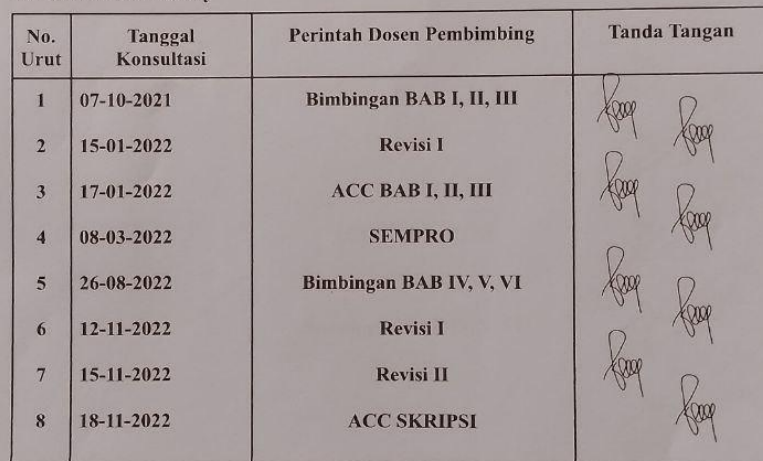 No. Urut Tanggal Konsultasi Perintah Dosen Pembimbing Tanda Tangan
1 07-10-2021 Bimbingan BAB I, II, III
2 15-01-2022 Revisi I
3 17-01-2022 ACC BAB I, II, III
4 08-03-2022 SEMPRO
5 26-08-2022 Bimbingan BAB IV, V, VI
6 12-11-2022 Revisi I
7 15-11-2022 Revisi II
8 18-11-2022 ACC SKRIPSI